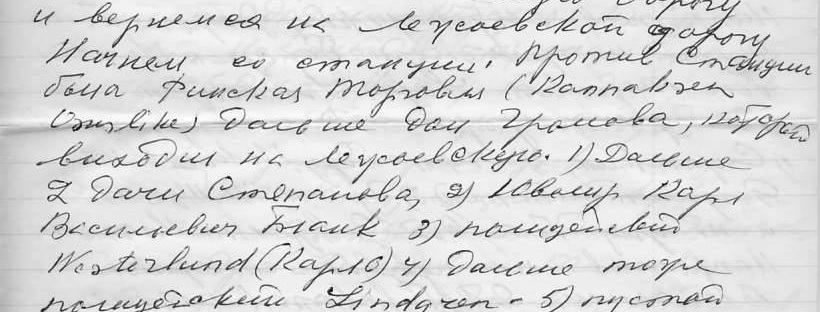 и вернемся на Лехоевской дорогу
Начнем со станции. Против станции
была Финская торговля (Kannaksen
Osuusliike) Дальше дом Громова, которой
виходил на Лехоевскую. 1) Дальше
2 дачи Степанова, 2) Ювелир Карл
Васильевич Бланк 3) полицейский
Westerlund (Карло) 4) Дальше тоже
полицейский Lindgren - 5) пустой